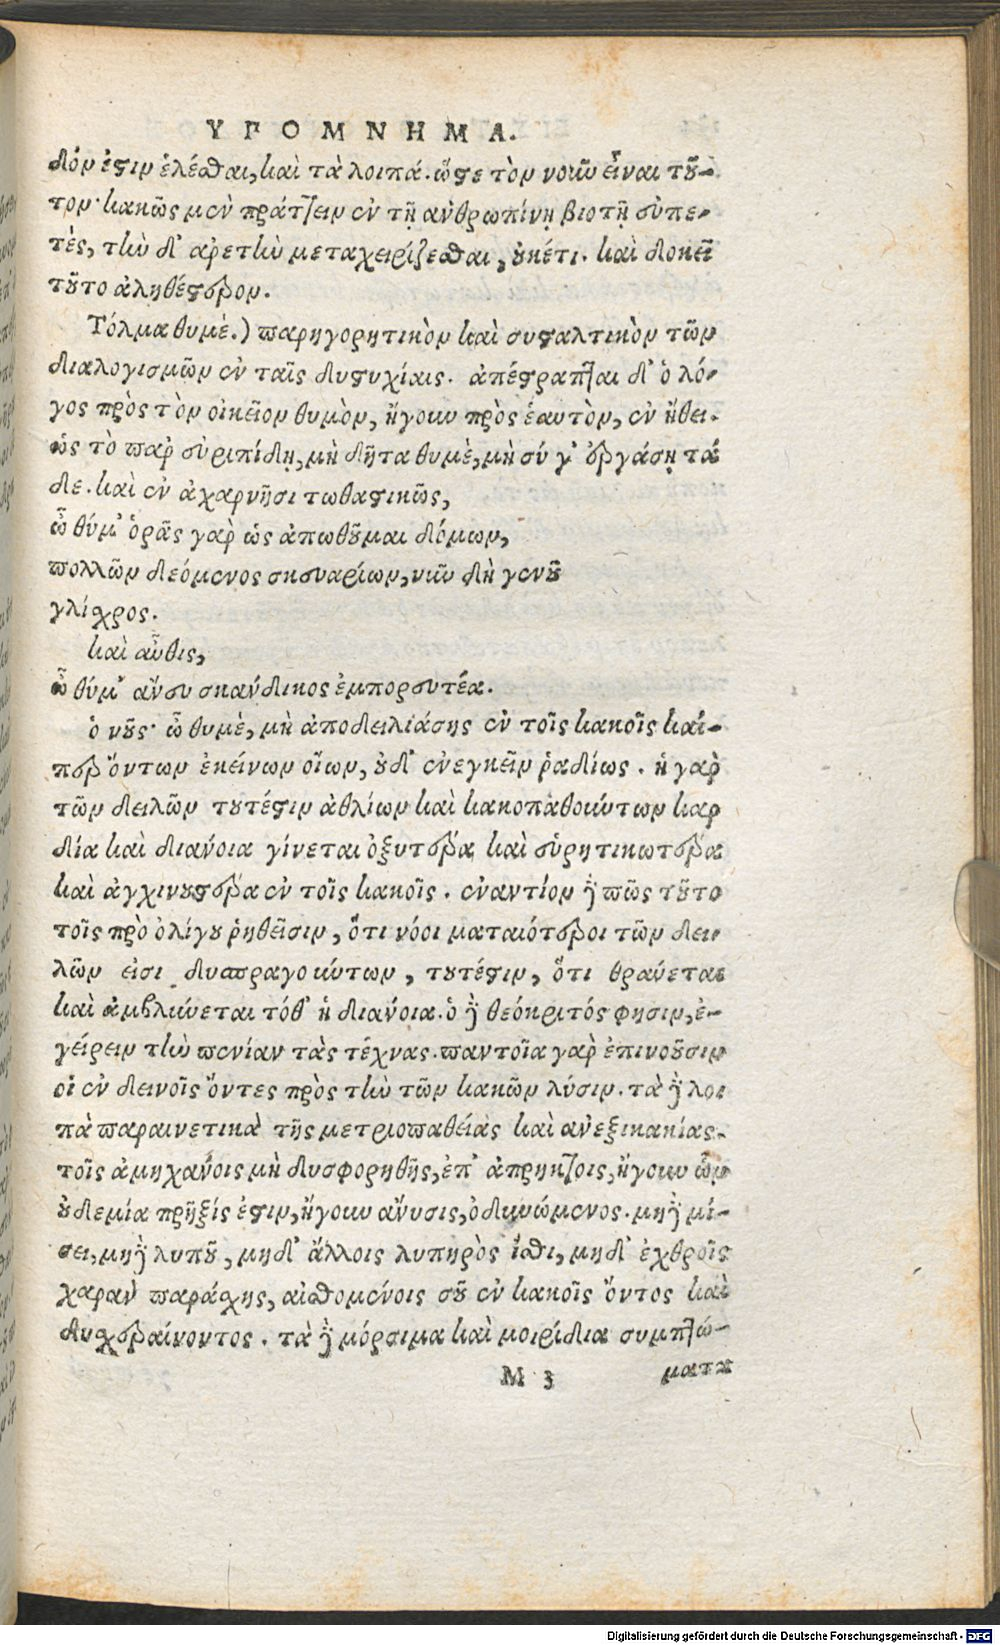 ΥΠΟΜΝΗΜΑ.
διόν ἐστιν ἑλέσθαι, καὶ τὰ λοιπά. ὥστε τὸν νοῦν εἶναι τοῦ-
τον· κακῶς μὲν πράττειν ἐν τῇ ἀνθρωπίνῃ βιοτῇ εὐπε-
τὲς, τὴν δ' ἀρετὴν μεταχειρίζεσθαι, οὐκέτι. καὶ δοκεῖ
τοῦτο ἀληθέστερον.
Τόλμα θυμὲ.) παρηγορητικὸν καὶ συσταλτικὸν τῶν
διαλογισμῶν ἐν ταῖς δυστυχίαις. ἀπέστραπται δ' ὁ λό-
γος πρὸς τὸν οἰκεῖον θυμὸν, ἤγουν πρὸς ἑαυτὸν, ἐν ἤθει.
ὡς τὸ παρ' εὐριπίδῃ, μὴ δῆτα θυμὲ, μὴ σύ γ' ἐργάσῃ τά
δε. καὶ ἐν ἀχαρνῆσι τωθαστικῶς,
ὦ θύμ' ὁρᾷς γὰρ ὡς ἀπωθοῦμαι δόμων,
πολλῶν δεόμενος σκευαρίων, νῦν δὴ γενοῦ
γλίσχρος.
καὶ αὖθις,
ὦ θύμ' ἄνευ σκάνδικος ἐμπορευτέα.
ὁ νοῦς· ὦ θυμὲ, μὴ ἀποδειλιάσης ἐν τοῖς κακοῖς καί-
περ ὄντων ἐκείνων οἵων, οὐδ' ἐνεγκεῖν ῥαδίως. ἡ γὰρ
τῶν δειλῶν τουτέστιν ἀθλίων καὶ κακοπαθούντων καρ
δία καὶ διάνοια γίνεται ὀξυτέρα, καὶ εὑρητικωτέρα
καὶ ἀγχινουστέρα ἐν τοῖς κακοῖς. ἐναντίον δέ πως τοῦτο
τοῖς πρὸ ὀλίγου ῥηθεῖσιν, ὅτι νόοι ματαιότεροι τῶν δει
λῶν εἰσι δυσπραγούντων, τουτέστιν, ὅτι θραύεται
καὶ ἀμβλύνεται τόθ' ἡ διάνοια. ὁ δὲ θεόκριτός φησιν, ἐ-
γείρειν τὴν πενίαν τὰς τέχνας. παντοῖα γὰρ ἐπινοοῦσιν
οἱ ἐν δεινοῖς ὄντες πρὸς τὴν τῶν κακῶν λύσιν. τὰ δὲ λοι
πὰ παραινετικὰ τῆς μετριοπαθείας καὶ ἀνεξικακίας.
τοῖς ἀμηχάνοις μὴ δυσφορηθῇς, ἐπ' ἀπρήκτοις, ἤγουν ὧν
οὐδεμία πρῆξίς ἐστιν, ἤγουν ἄνυσις, ὀδυνώμενος. μὴ δὲ μί-
σει, μὴ δὲ λυποῦ, μηδ' ἄλλοις λυπηρὸς ἴσθι, μηδ' ἐχθροῖς
χαρὰν παράσχῃς, αἰσθομένοις σοῦ ἐν κακοῖς ὄντος καὶ
δυσχεραίνοντος. τὰ δὲ μόρσιμα καὶ μοιρίδια συμπτώ-
M 3 ματα
Digitalisierung gefördert durch die Deutsche Forschungsgemeinschaft - DFG